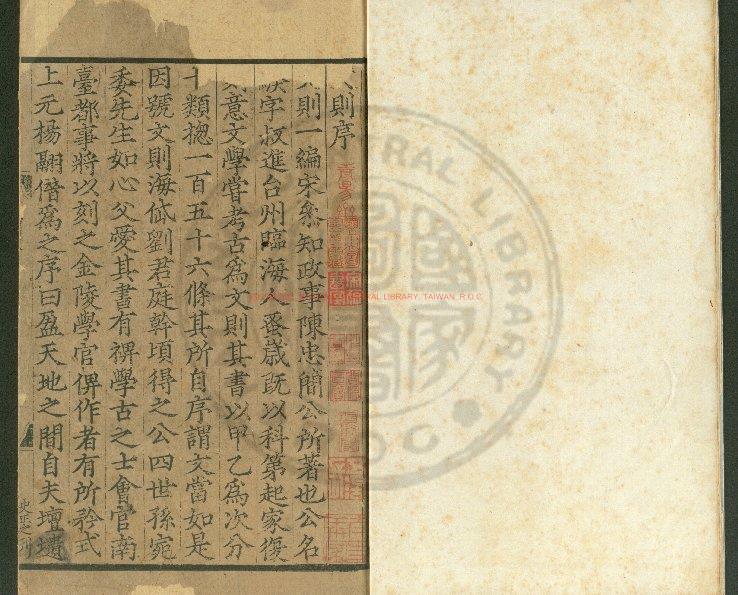 則序
則一編宋叅知政事陳忠簡公所著也公名
字叔進台州臨海人蚤歲既以科第起家復
意文學嘗考古為文則其書以甲乙為次分
十類揔一百五十六條其所自序謂文當如是
因號文則海岱劉君庭幹頃得之公四世孫宛
委先生如心父愛其書有禆學古之士會官南
臺都事將以刻之金陵學官俾作者有所矜式
上元楊翮僭為之序曰盈天地之間自夫壇
CENTRAL LIBRARY
CENTRAL LIBRARY, TAIWAN, R.O.C.